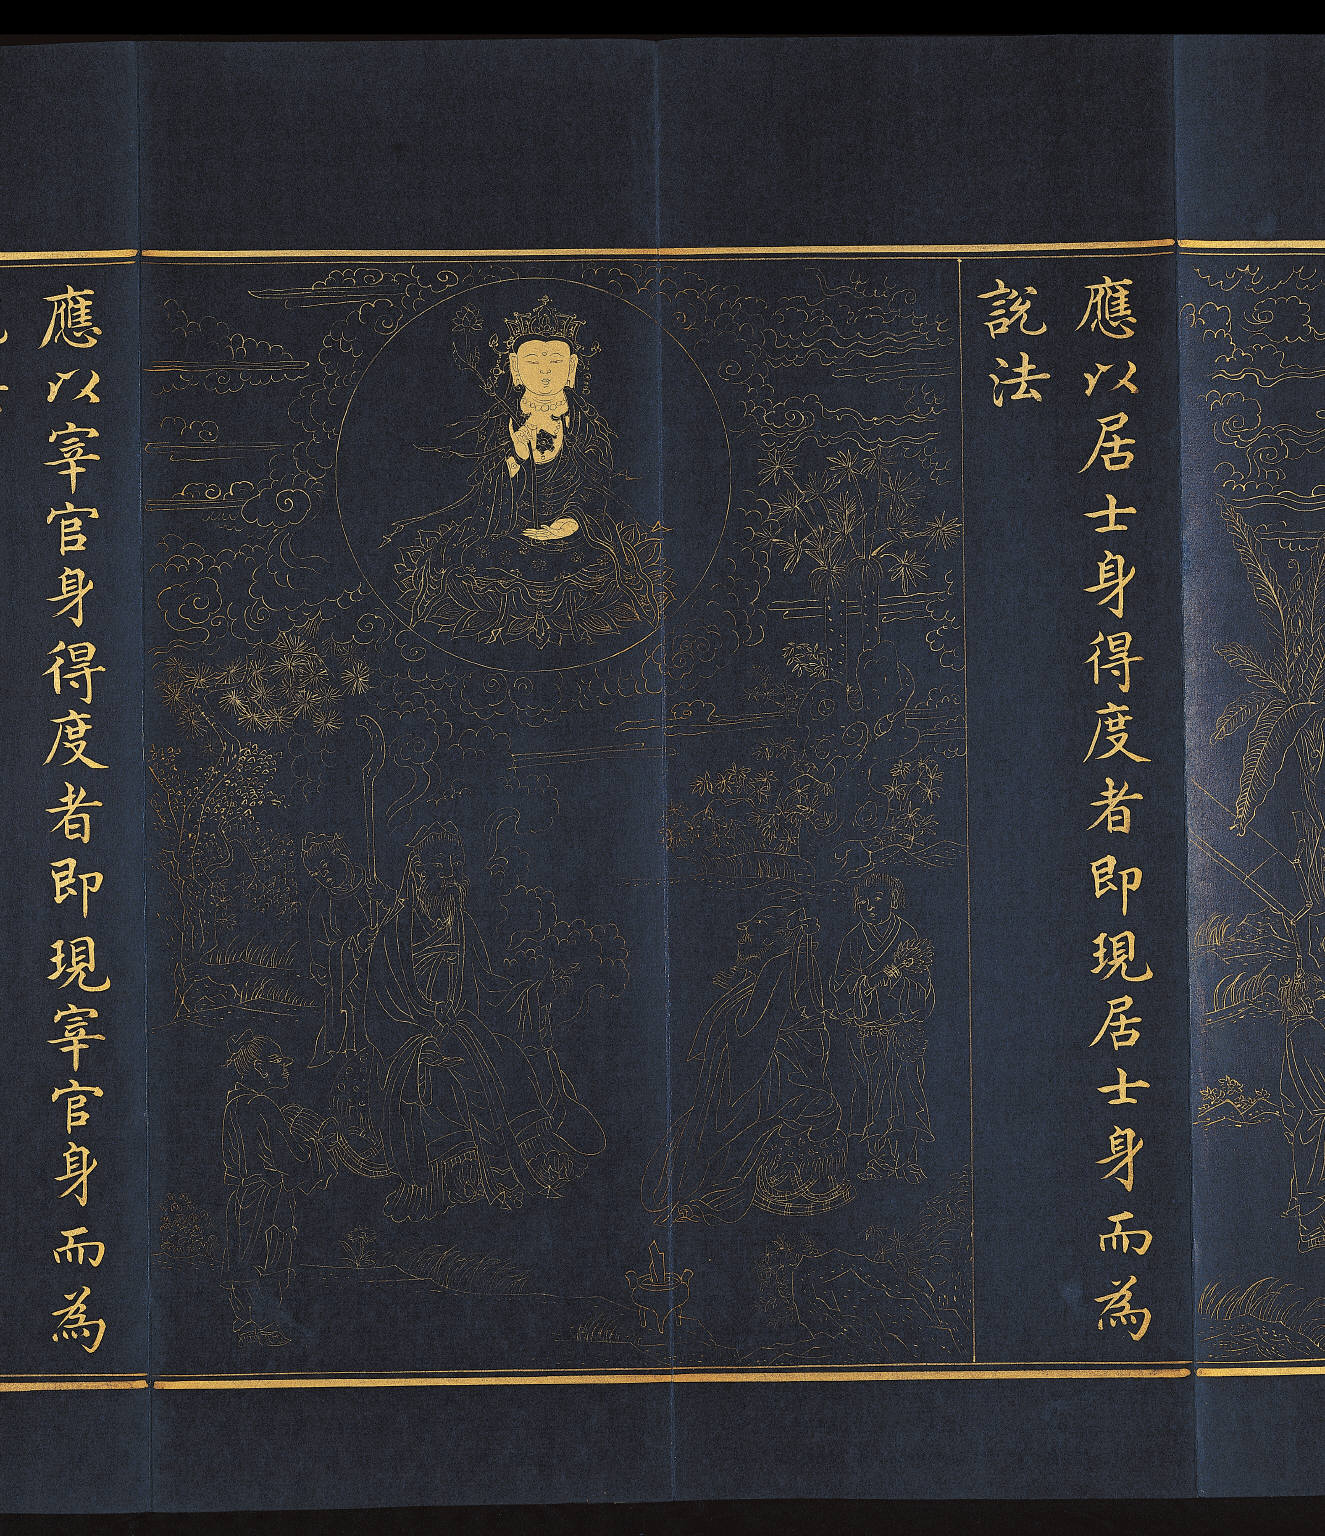 應以居士身得度者即現居士身而為
說法
應以宰官身得度者即現宰官身而為